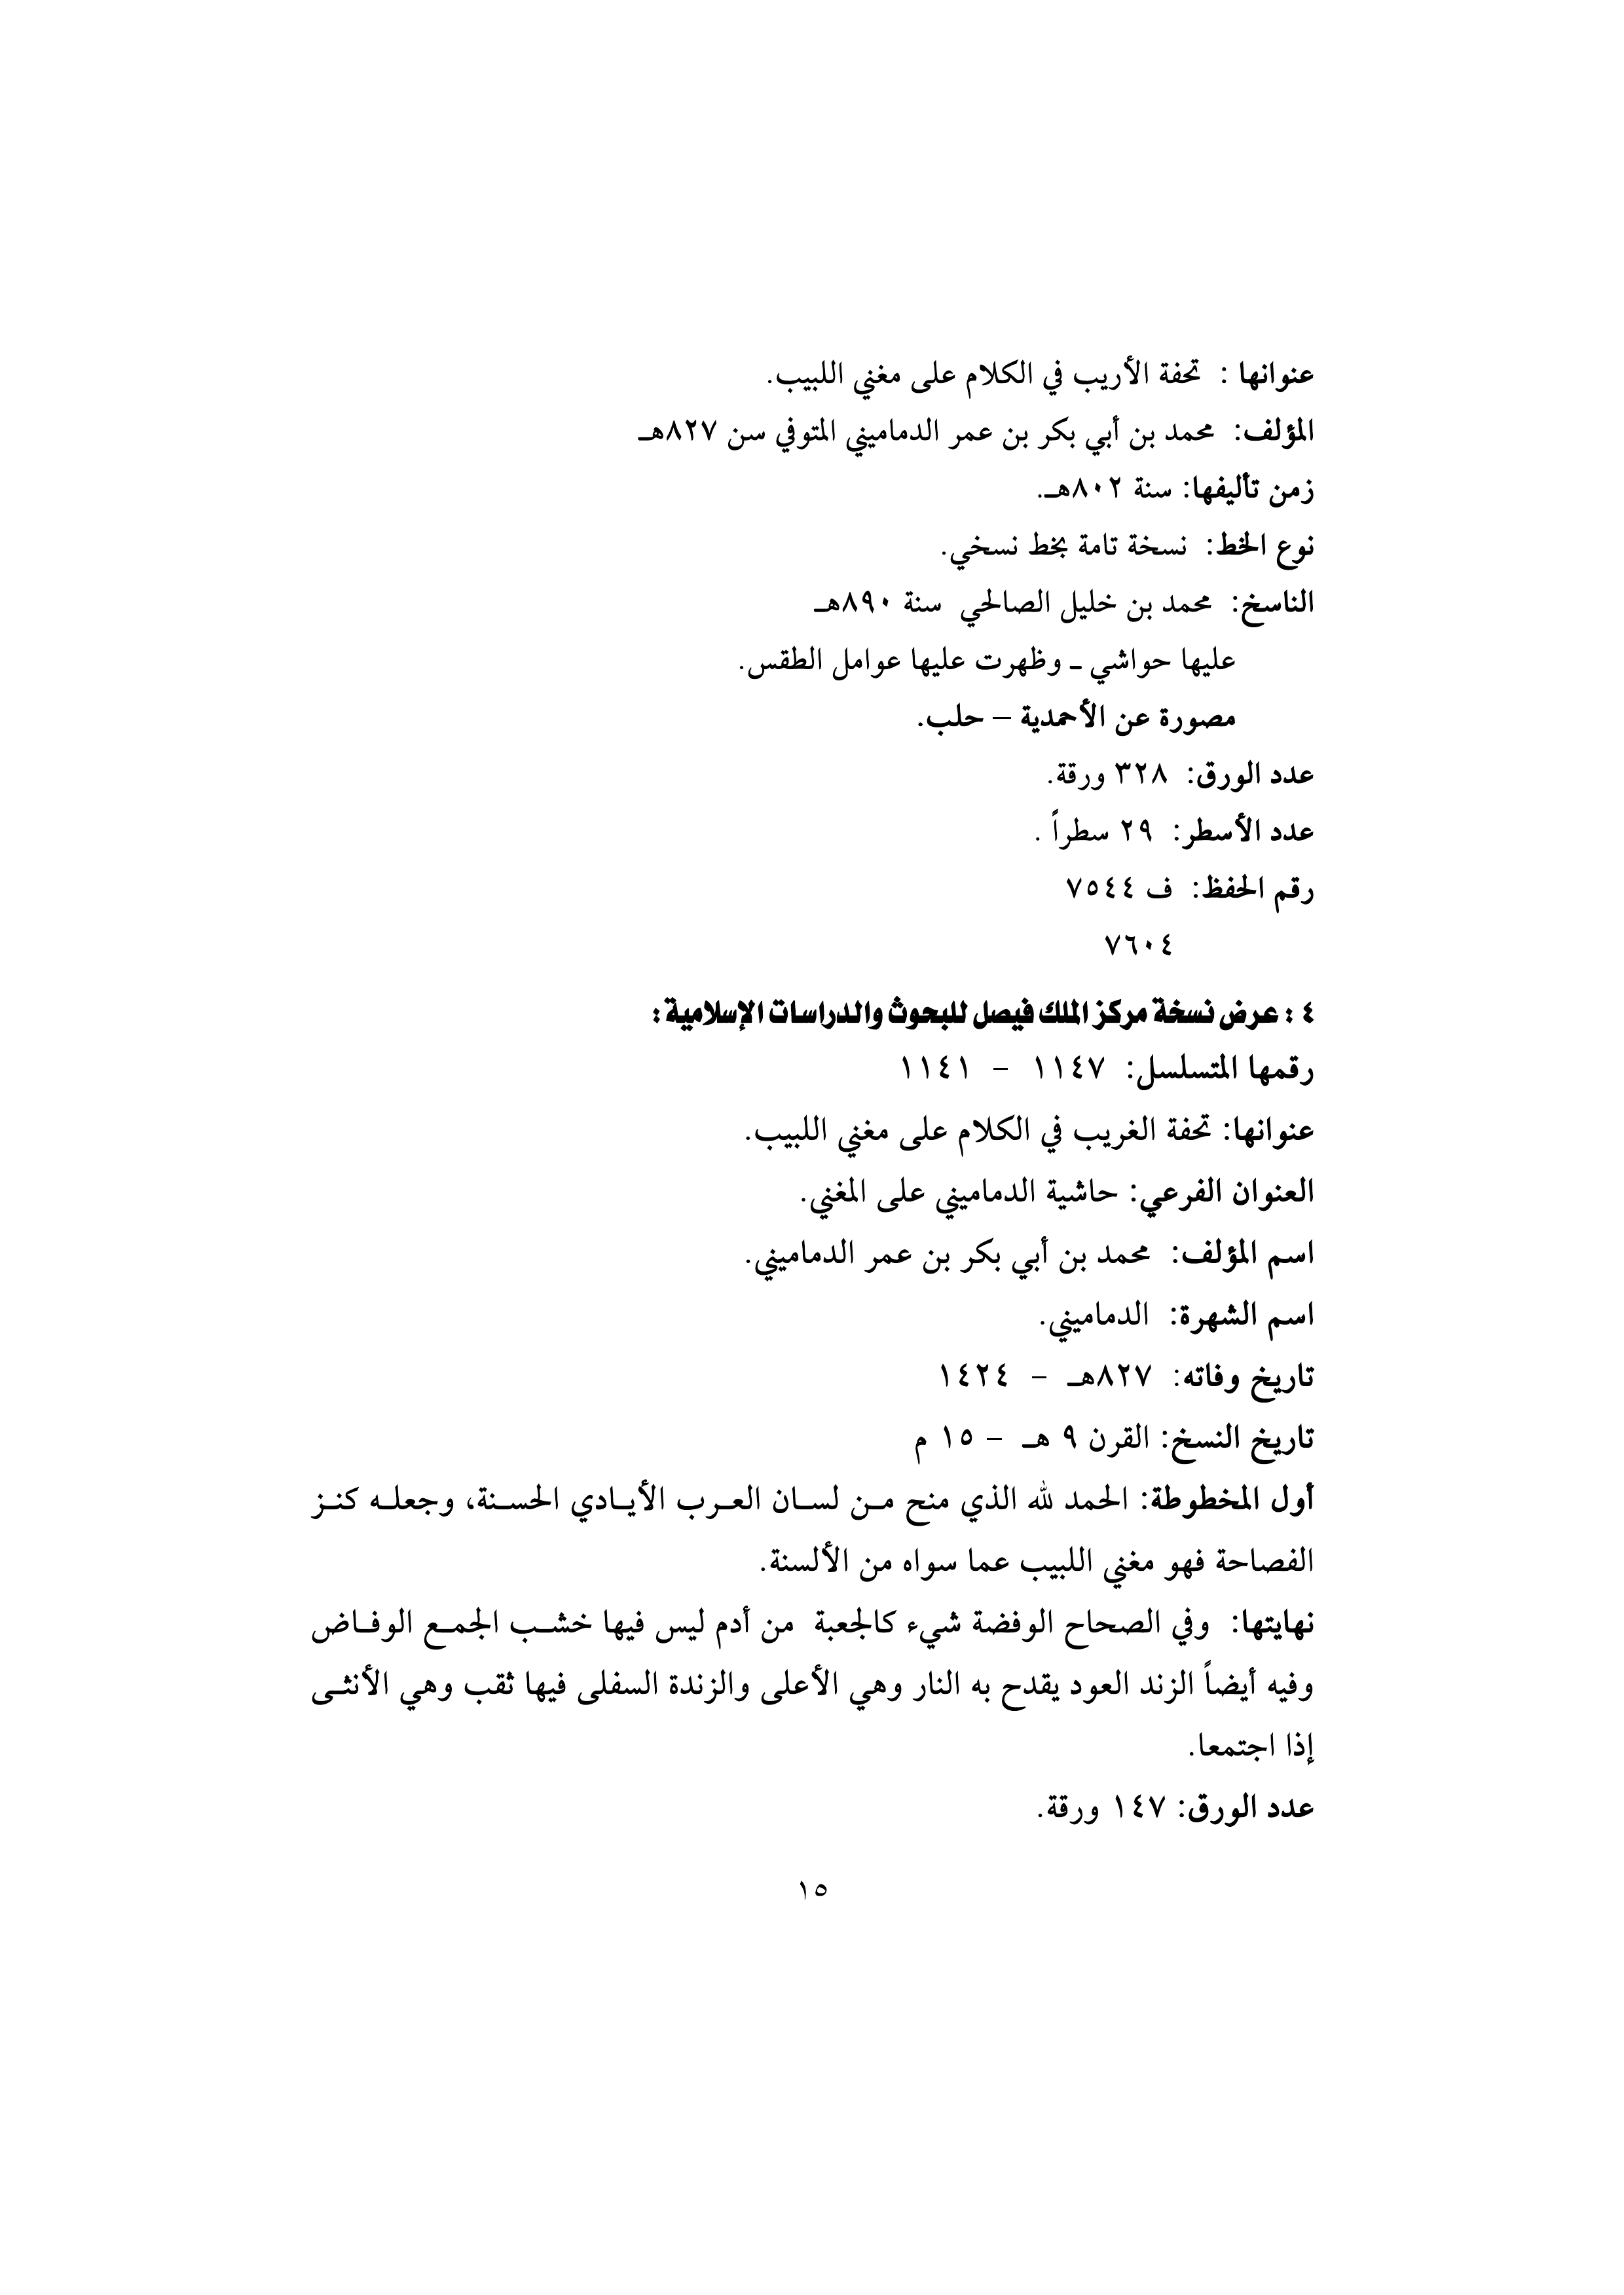 عنوانها : تحفة الأريب في الكلام على مغني اللبيب.
المؤلف: محمد بن أبي بكر بن عمر الدماميني المتوفي سن ٨٢٧هـ
زمن تأليفها: سنة ٨٠٢هـ.
نوع الخط: نسخة تامة بخط نسخي.
الناسخ: محمد بن خليل الصالحي سنة ٨٩٠هـ
عليها حواشي ـ وظهرت عليها عوامل الطقس.
مصورة عن الأحمدية – حلب.
عدد الورق: ٣٢٨ ورقة.
عدد الأسطر: ٢٩ سطراً .
رقم الحفظ: ف ٧٥٤٤
٧٦٠٤
٤ : عرض نسخة مركز الملك فيصل للبحوث والدراسات الإسلامية :
رقمها المتسلسل: ١١٤٧ – ١١٤١
عنوانها: تحفة الغريب في الكلام على مغني اللبيب.
العنوان الفرعي: حاشية الدماميني على المغني.
اسم المؤلف: محمد بن أبي بكر بن عمر الدماميني.
اسم الشهرة: الدماميني.
تاريخ وفاته: ٨٢٧هـ – ١٤٢٤
تاريخ النسخ: القرن ٩ هـ – ١٥ م
أول المخطوطة: الحمد لله الذي منح مـن لسـان العـرب الأيـادي الحسـنة، وجعلـه كنـز
الفصاحة فهو مغني اللبيب عما سواه من الألسنة.
نهايتها: وفي الصحاح الوفضة شيء كالجعبة من أدم ليس فيها خشـب الجمـع الوفـاض
وفيه أيضاً الزند العود يقدح به النار وهي الأعلى والزندة السفلى فيها ثقب وهي الأنثـى
إذا اجتمعا.
عدد الورق: ١٤٧ ورقة.
١٥